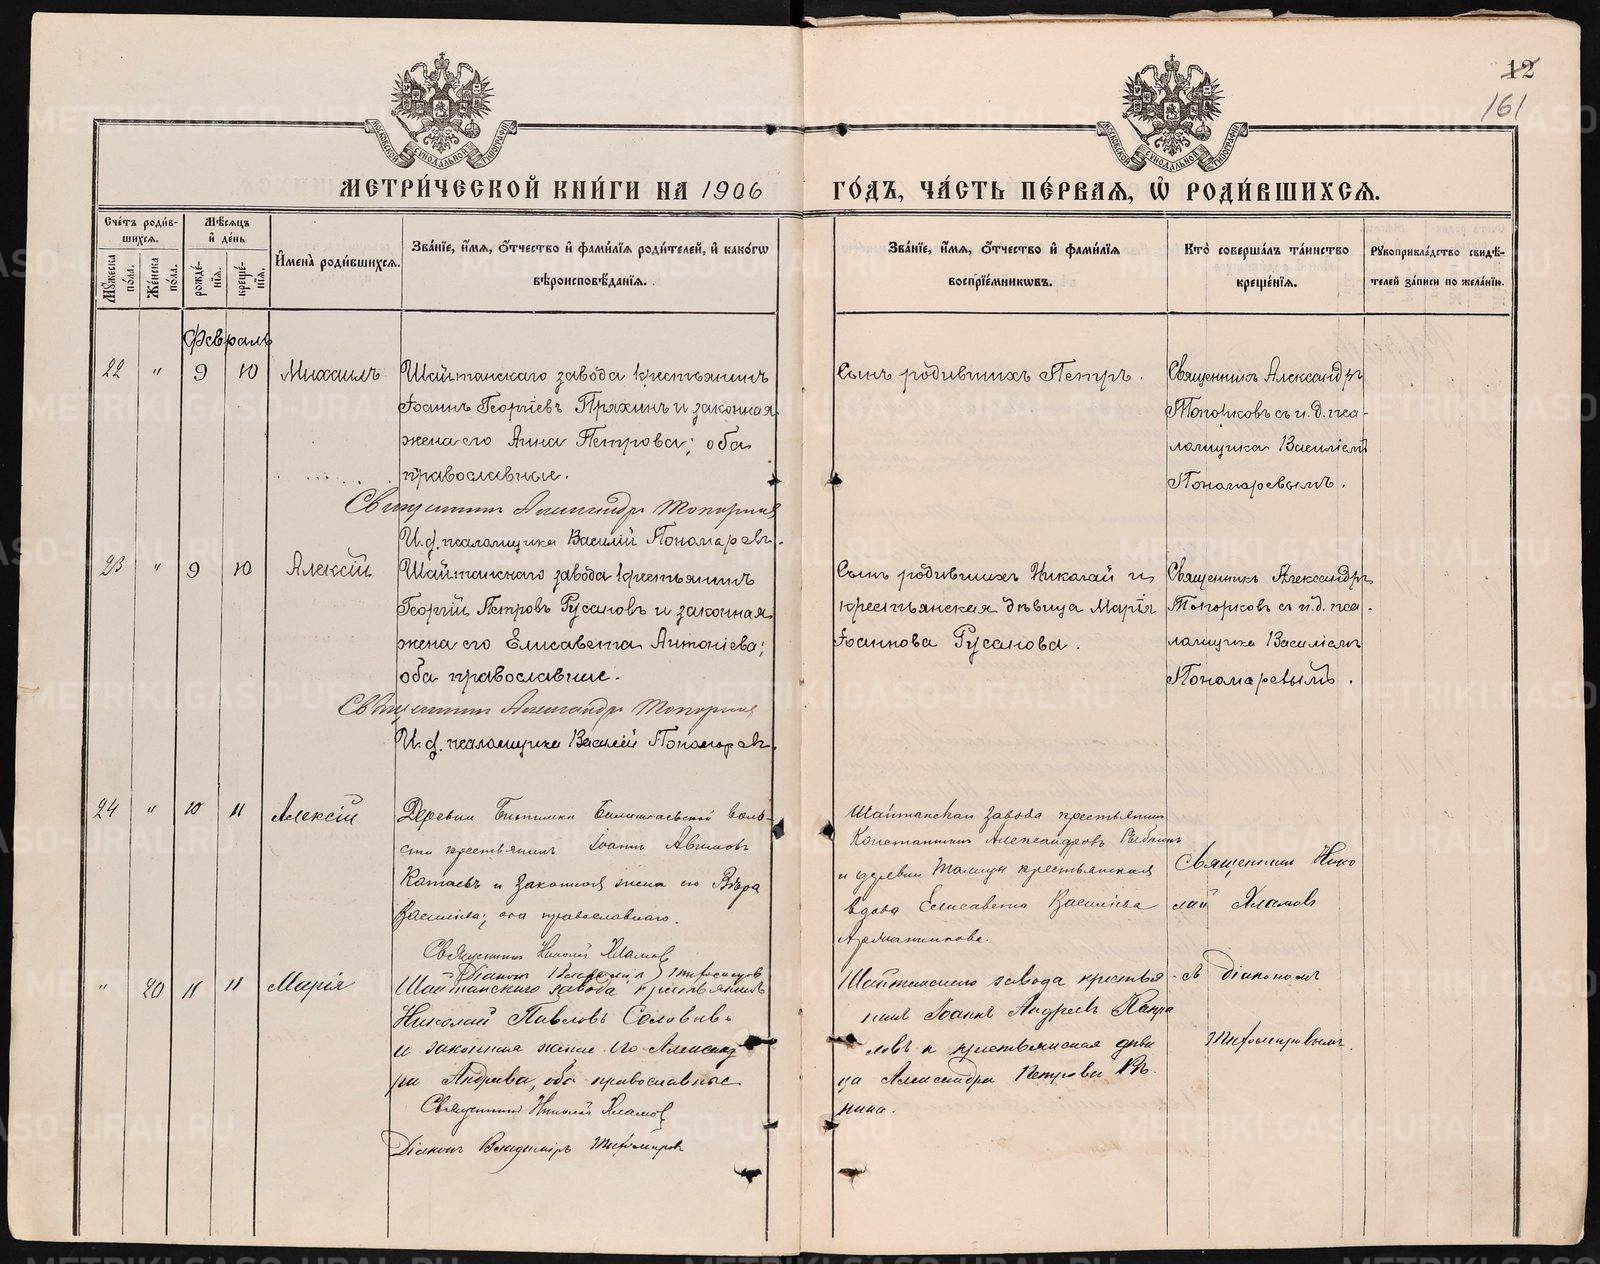 12
161
МЕТРИ́ЧЕСКОЙ КНИ́ГИ НА 1906 ГО́ДЪ, ЧА́СТЬ ПЕ́РВАЯ, Ѽ РОДИ́ВШИХСѦ.
МОСКОВСКОЙ СѴНОДАЛЬНОЙ ТИПОГРАФІИ
МОСКОВСКОЙ СѴНОДАЛЬНОЙ ТИПОГРАФІИ
Сче́тъ роди́в-
шихсѧ.
Мѣ́сѧцъ
и҆ де́нь
Мꙋ́жеска по́ла.
Же́нска по́ла.
рожде́-
нїѧ.
креще́-
нїѧ.
И҆мена̀ роди́вшихсѧ.
Зва́нїе, и҆́мѧ, ѻ҆́тчество и҆ фами́лїѧ роди́телей, и҆ како́гѡ
вѣроисповѣ́данїѧ.
Зва́нїе, и҆́мѧ, ѻ҆́тчество и҆ фами́лїѧ
воспрїе́мникѡвъ.
Кто̀ соверша́лъ та́инство
креще́нїѧ.
Рꙋкоприкла́дство свидѣ́-
телей за́писи по жела́нїю.
Февраль
22 " 9 10 Михаилъ
Шайтанскаго завода крестьянинъ
Іоаннъ Георгіевъ Пряхинъ и законная
жена его Анна Петрова; оба
православные.
Священникъ Александръ Топорковъ
И. д. псаломщика Василій Пономаревъ.
Сынъ родившихъ Петръ.
Священникъ Александръ
Топорковъ съ и. д. пса-
ломщика Василіемъ
Пономаревымъ.
23 " 9 10 Алексій
Шайтанскаго завода крестьянинъ
Георгій Петровъ Русановъ и законная
жена его Елисавета Антоніева;
оба православные.
Священникъ Александръ Топорковъ
И. д. псаломщика Василій Пономаревъ.
Сынъ родившихъ Николай и
крестьянская дѣвица Марія
Іоаннова Русанова.
Священникъ Александръ
Топорковъ съ и. д. пса-
ломщика Василіемъ
Пономаревымъ.
24 " 10 11 Алексій
Деревни Битимки Билимбаевской воло-
сти крестьянинъ Іоаннъ
Катаевъ и законная жена его Вѣра
Василіева; оба православнаго.
Священникъ Николай Хламовъ
Діаконъ Владиміръ Тихомировъ
Шайтанскаго завода крестьянинъ
Константинъ Александровъ
и деревни Талицы крестьянская
вдова Елисавета Василіева
Священникъ Нико
лай Хламовъ
" 20 11 11 Марія
Шайтанскаго завода крестьянинъ
Николай Павловъ Соловьевъ
и законная жена его Александ
ра Андреева, оба православные
Священникъ Николай Хламовъ
Діаконъ Владиміръ Тихомировъ
Шайтанскаго завода крестья
нинъ Іоаннъ Андреевъ
и крестьянская дѣви
ца Александра Петрова
съ діакономъ
Тихомировымъ.
METRIKI.GASO-URAL.RU